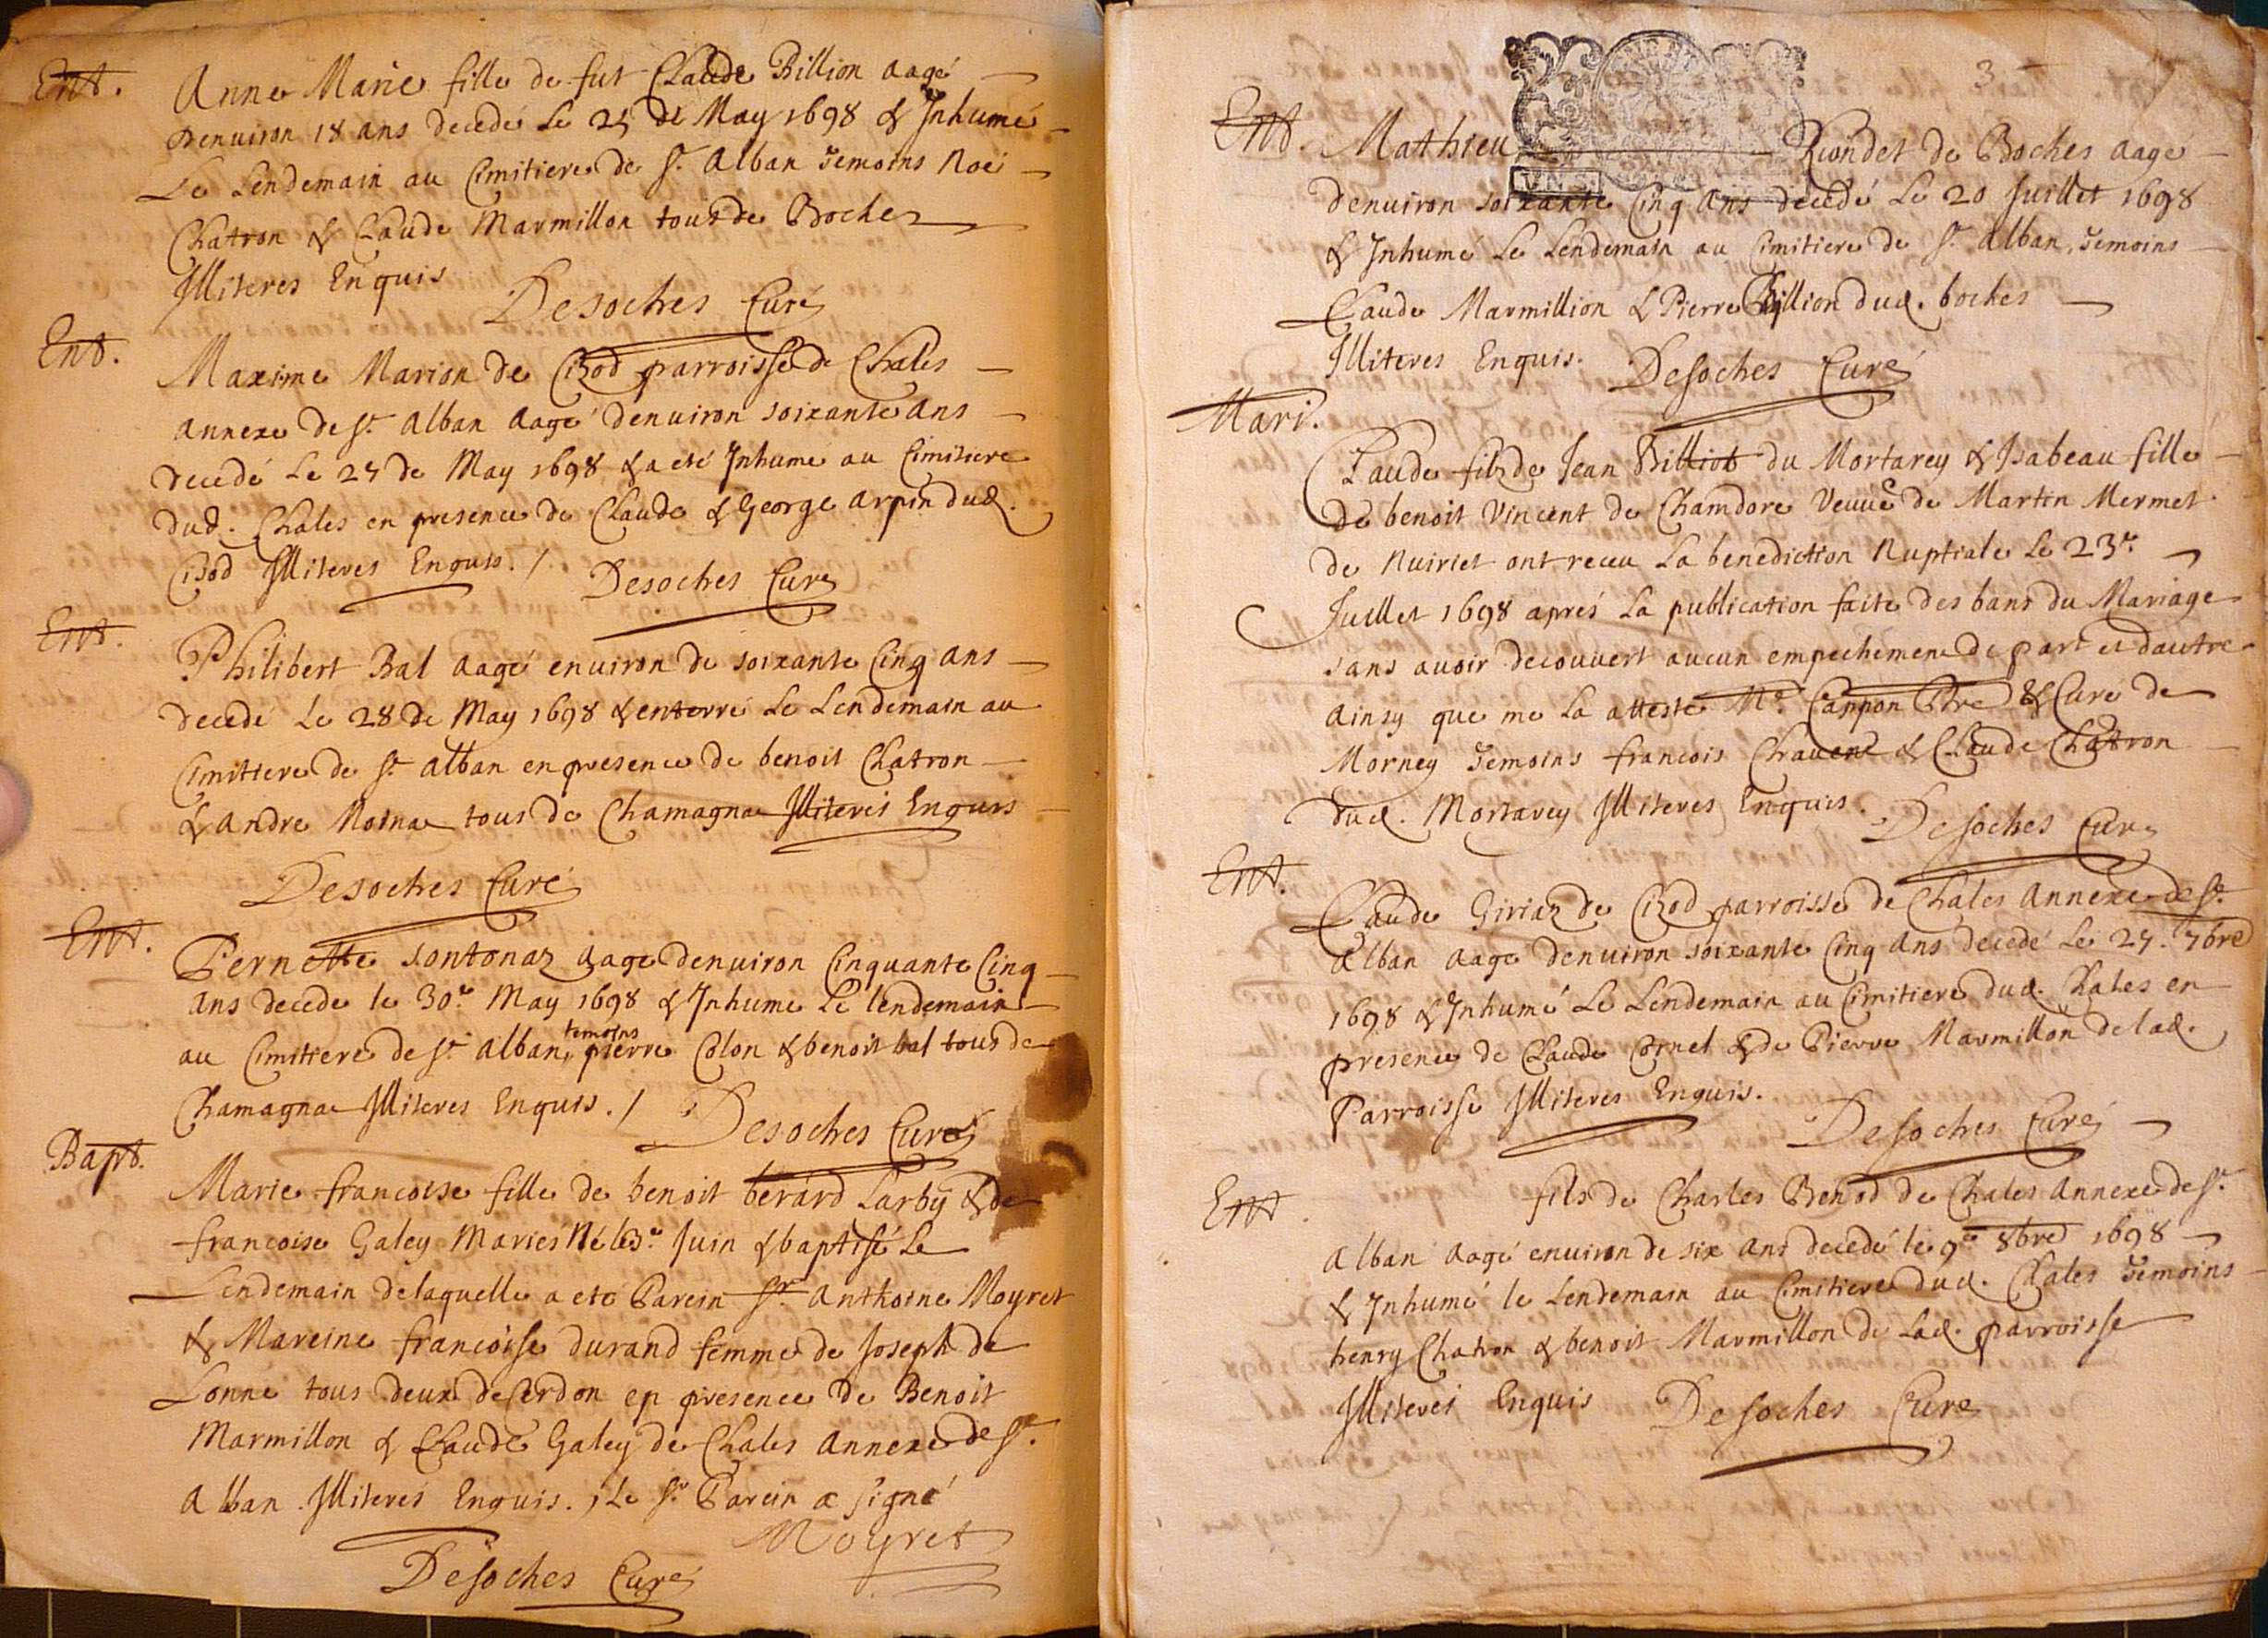 Ent.
Anne Marie fille de fut Claude Billion aagé
denuiron 18 ans decedé Le 25 de May 1698 & Inhumé
Le Lendemain au Cimitiere de St. Alban Temoins Noé
Chatron & Claude Marmillon tous de Boches
Illiteres Enquis
Desoches Curé
Ent.
Maxime Marion de Cizod parroisse de Chales
annexe de St. Alban aagé denuiron soixante ans
decedé Le 27 de May 1698 & a eté Inhume au Cimitiere
dud. Chales en presence de Claude & George Arpin dud.
Cizod Illiteres Enquis. /
Desoches Curé
Ent.
Philibert Bal aagé enuiron de soixante Cinq ans
decedé Le 28 de May 1698 & enterré Le Lendemain au
Cimitiere de St. Alban en presence de benoit Chatron
& Andre Moinae tous de Chamagnae Illiteres Enquis
Desoches Curé
Ent.
Pernette Sontonaz aage denuiron Cinquante Cinq
ans decede le 30e. May 1698 & Inhume Le lendemain
au Cimitiere de St. Alban, temoins pierre Colon & benoit bal tous de
Chamagnae Illiteres Enquis. /
Desoches Curé
Bapt.
Marie francoise fille de benoit berard Larby & de
francoise Galey Mariés Né le 3e. Juin & baptisé Le
Lendemain delaquelle a eté Parein Sr. Anthoine Moyret
& Mareine francoise durand femme de Joseph de
Lonne tous deux de Cerdon en presence de Benoit
Marmillon & Claude Galey de Chales Annexe de St.
Alban. Illiteres Enquis. , Le Sr. Parein a signé
Moyret
Desoches Curé
3
Ent.
Mathieu Riondet de Boches aagé
denuiron soixante Cinq ans decedé Le 20 Juillet 1698
& Inhumé Le Lendemain au Cimitiere de St. Alban, Temoins
Claude Marmillion & Pierre Billion dud. boches
Illiteres Enquis.
Desoches Curé
Mari.
Claude filz de Jean Billiot du Mortarey & Isabeau fille
de benoit Vincent de Chamdore Veuue de Martin Mermet
de Nuiriet ont receu La benediction Nuptiale Le 23e.
Juillet 1698 aprés La publication faite des bans du Mariage
sans auoir decouvert aucun empechement de part et dautre
ainsy que me La attesté Mre. Cappon Ptre & Curé de
Morney Temoins francois Chavent & Claude Chatron
dud. Mortarey Illiteres Enquis.
Desoches Curé
Ent.
Claude Giriaz de Cizod parroisse de Chales Annexe de St.
Alban aage denuiron soixante Cinq ans decedé Le 27. 7bre
1698 & Inhumé Le Lendemain au Cimitiere dud. Chales en
presence de Claude Cornel & de Pierre Marmillon de lad.
Parroisse Illiteres Enquis.
Desoches Curé
Ent
fils de Charles Benod de Chales Annexe de St.
Alban aagé enuiron de six ans decedé le 9e 8bre 1698
& Inhumé le Lendemain au Cimitiere dud. Chales Temoins
henry Chatron & benoit Marmillon de Lad. parroisse
Illiteres Enquis
Desoches Curé